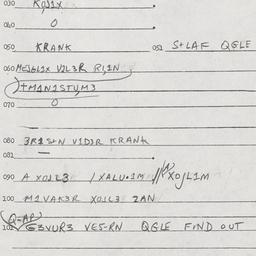 030 KOJ1X
040 O
050 KRANK 051 S+LAF QGLE
060 MEJGL1X V1L3R R1,1N
+M1N1STUM3
070 O
080 3R1S+N V1D3R KRANK
081
090 A XOJL3 / XALU.1M // XOJL1M
100 M1VAK3R XO1L3 2AN
Q-AP
101 G3VUR3 VES-RN QGLE FIND OUT